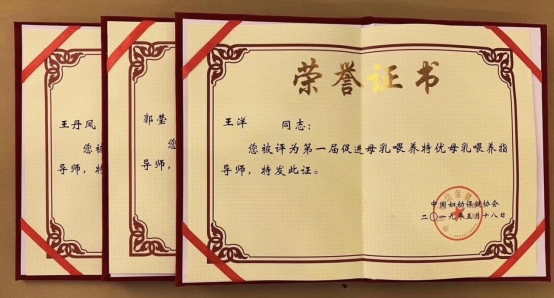 王丹凤
您被
导师，特
郭莹
您
导师，特
荣誉证书
王洋 同志：
您被评为第一届促进母乳喂养特优母乳喂养指
导师，特发此证。
中国妇幼保健协会
二〇一九年五月十八日